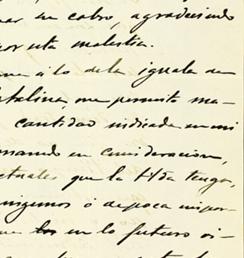 en cobro, agradeciendo
por esta molestia.
a lo de la iguala de
Catalina, me permito ma-
cantidad indicada en mi
tomando en consideracion,
actuales que la Hda tengo,
ó de poca impor-
que los en lo futuro o-